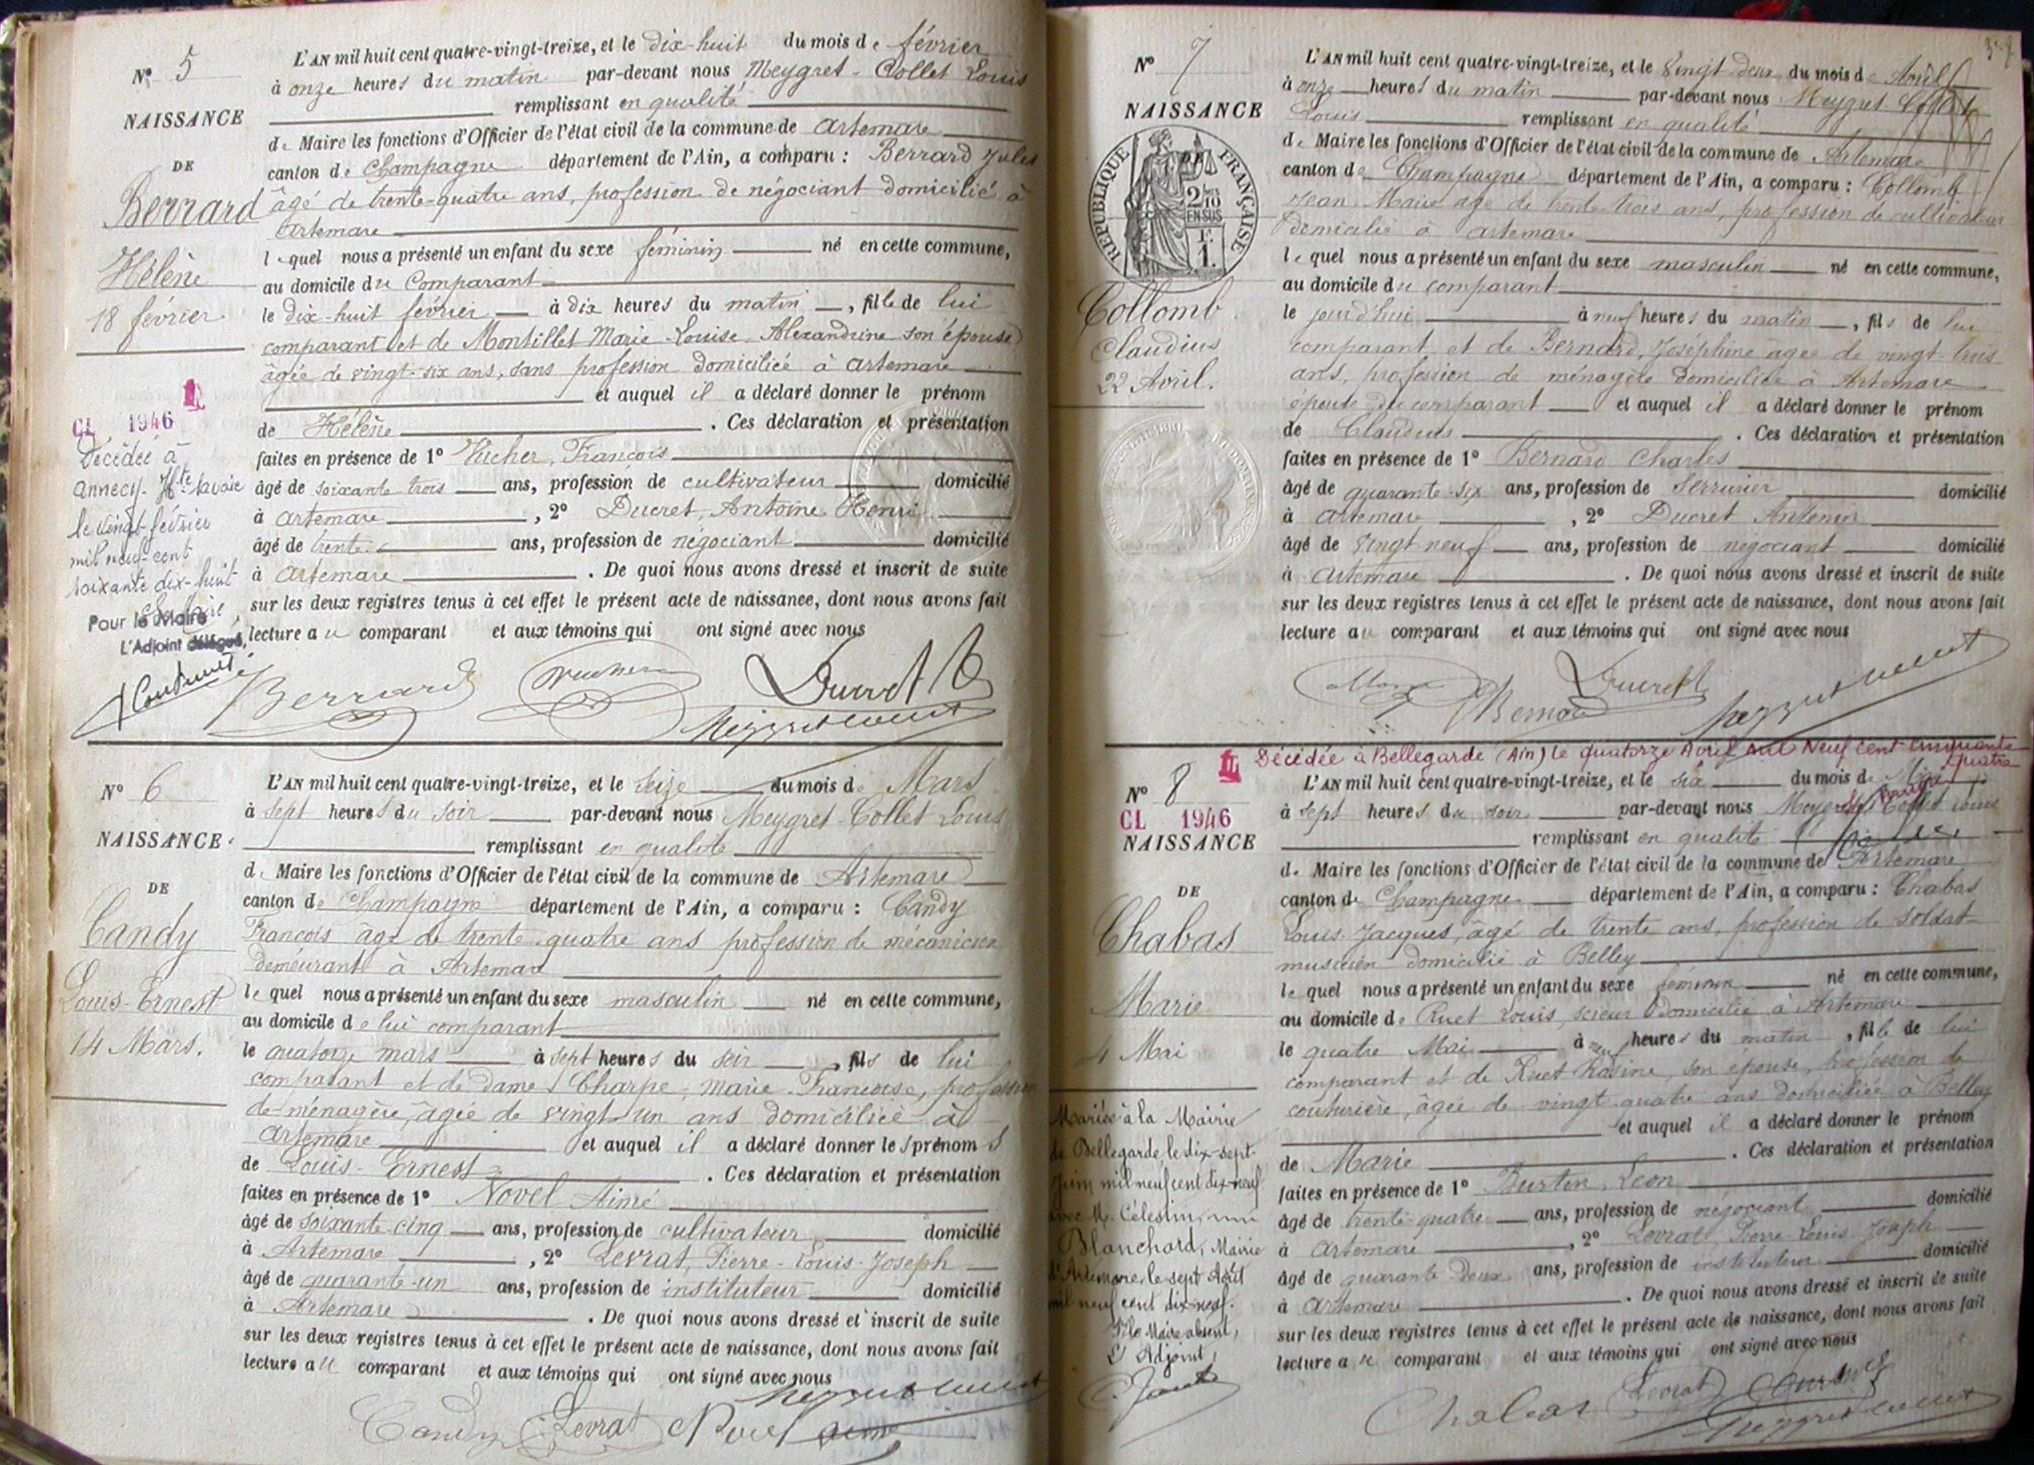 Nº 5
NAISSANCE
DE
Berrard
Hélène
18 février
CL 1946
Décédée à
Annecy. Hte Savoie
le vingt février
mil neuf-cent
soixante dix-huit
Pour le Maire
L'Adjoint délégué,
L'AN mil huit cent quatre-vingt-treize, et le dix-huit du mois de février
à onze heures du matin par-devant nous Meygret-Collet Louis
remplissant en qualité
de Maire les fonctions d'Officier de l'état civil de la commune de Artemare
canton de Champagne département de l'Ain, a comparu : Berrard Jules
âgé de trente-quatre ans, profession de négociant domicilié à
Artemare
lequel nous a présenté un enfant du sexe féminin né en cette commune,
au domicile du Comparant
le dix-huit février à dix heures du matin, fille de lui
comparant et de Montillet Marie-Louise-Alexandrine son épouse
âgée de vingt-six ans, sans profession domiciliée à Artemare
et auquel il a déclaré donner le prénom
de Hélène. Ces déclaration et présentation
faites en présence de 1º Vucher, François
âgé de soixante trois ans, profession de cultivateur domicilié
à Artemare, 2º Ducret, Antoine Henri
âgé de trente ans, profession de négociant domicilié
à Artemare. De quoi nous avons dressé et inscrit de suite
sur les deux registres tenus à cet effet le présent acte de naissance, dont nous avons fait
lecture au comparant et aux témoins qui ont signé avec nous
Berrard Vucher Ducret
Meygret-Collet
Nº 6
NAISSANCE
DE
Candy
Louis-Ernest
14 Mars.
L'AN mil huit cent quatre-vingt-treize, et le seize du mois de Mars
à sept heures du soir par-devant nous Meygret-Collet Louis
remplissant en qualité
de Maire les fonctions d'Officier de l'état civil de la commune de Artemare
canton de Champagne département de l'Ain, a comparu : Candy
François âgé de trente-quatre ans profession de mécanicien
demeurant à Artemare
lequel nous a présenté un enfant du sexe masculin né en cette commune,
au domicile de lui comparant
le quatorze mars à sept heures du soir, fils de lui
comparant et de dame Charpe, Marie-Françoise, profession
de ménagère, âgée de vingt-un ans domiciliée à
Artemare et auquel il a déclaré donner les prénoms
de Louis-Ernest. Ces déclaration et présentation
faites en présence de 1º Novel Aimé
âgé de soixante-cinq ans, profession de cultivateur domicilié
à Artemare, 2º Levrat, Pierre-Louis-Joseph
âgé de quarante-un ans, profession de instituteur domicilié
à Artemare. De quoi nous avons dressé et inscrit de suite
sur les deux registres tenus à cet effet le présent acte de naissance, dont nous avons fait
lecture au comparant et aux témoins qui ont signé avec nous
Meygret-Collet
Candy Levrat Novel aimé
Nº 7
NAISSANCE
RÉPUBLIQUE FRANÇAISE
2/10
EN SUS
F.
1.
Collomb
Claudius
22 Avril.
L'AN mil huit cent quatre-vingt-treize, et le vingt deux du mois de Avril
à onze heures du matin par-devant nous Meygret Collet
Louis remplissant en qualité
de Maire les fonctions d'Officier de l'état civil de la commune de Artemare
canton de Champagne département de l'Ain, a comparu : Collomb
Jean Marie âgé de trente trois ans, profession de cultivateur
domicilié à Artemare
lequel nous a présenté un enfant du sexe masculin né en cette commune,
au domicile du comparant
le jourd'hui à neuf heures du matin, fils de lui
comparant et de Bernard, Joséphine âgée de vingt-trois
ans, profession de ménagère domiciliée à Artemare
épouse du comparant et auquel il a déclaré donner le prénom
de Claudius. Ces déclaration et présentation
faites en présence de 1º Bernard Charles
âgé de quarante-six ans, profession de serrurier domicilié
à Artemare, 2º Ducret Antonin
âgé de vingt-neuf ans, profession de négociant domicilié
à Artemare. De quoi nous avons dressé et inscrit de suite
sur les deux registres tenus à cet effet le présent acte de naissance, dont nous avons fait
lecture au comparant et aux témoins qui ont signé avec nous
Ducret
Bernard Meygret-Collet
Décédée à Bellegarde (Ain) le quatorze Avril mil Neuf cent cinquante
quatre
Nº 8
CL 1946
NAISSANCE
DE
Chabas
Marie
4 Mai
Mariée à la Mairie
de Bellegarde, le dix-sept
Juin mil neuf cent dix-neuf
avec M. Célestin
Blanchard, Mairie
d'Artemare, le sept Août
mil neuf cent dix-neuf.
P. le Maire absent,
L'Adjoint,
L'AN mil huit cent quatre-vingt-treize, et le six du mois de Mai
à sept heures du soir par-devant nous Meygret-Collet Louis
remplissant en qualité
de Maire les fonctions d'Officier de l'état civil de la commune de Artemare
canton de Champagne département de l'Ain, a comparu : Chabas
Louis Jacques, âgé de trente ans, profession de soldat
musicien domicilié à Belley
lequel nous a présenté un enfant du sexe féminin né en cette commune,
au domicile de Ruet Louis, scieur domicilié à Artemare
le quatre Mai à neuf heures du matin, fille de lui
comparant et de Ruet Rosine, son épouse, profession de
couturière, âgée de vingt-quatre ans domiciliée à Belley
et auquel il a déclaré donner le prénom
de Marie. Ces déclaration et présentation
faites en présence de 1º Burtin, Léon
âgé de trente-quatre ans, profession de négociant domicilié
à Artemare, 2º Levrat, Pierre-Louis-Joseph
âgé de quarante deux ans, profession de instituteur domicilié
à Artemare. De quoi nous avons dressé et inscrit de suite
sur les deux registres tenus à cet effet le présent acte de naissance, dont nous avons fait
lecture au comparant et aux témoins qui ont signé avec nous
Chabas Levrat
Meygret-Collet